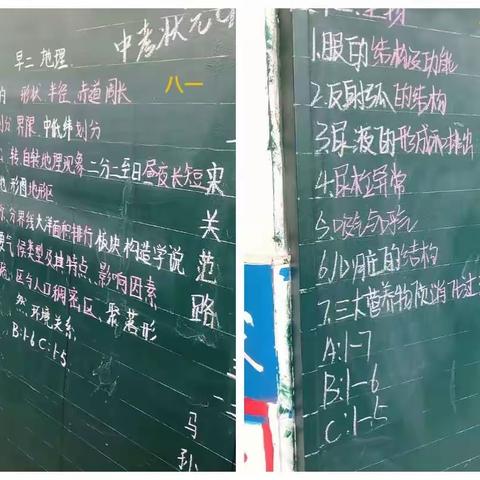 早二 地理
中考状元
八一
的 形状 半径 赤道周长
划分 界限 中低纬划分
转 自转地理现象 二分二至日昼夜长短
地形图地形区
分界线大洋面积排行 板块构造学说
气候类型及其特点、影响因素
区与人口稠密区、聚落形
环境关系
B:1-6 C:1-5
实
关
范
路
马
孙
生物
1.眼的结构及功能
2.反射弧的结构
3.尿液的形成和排出
4.尿检异常
5.吸气与呼气
6.心脏的结构
7.三大营养物质消化过
A:1-7
B:1-6
C:1-5